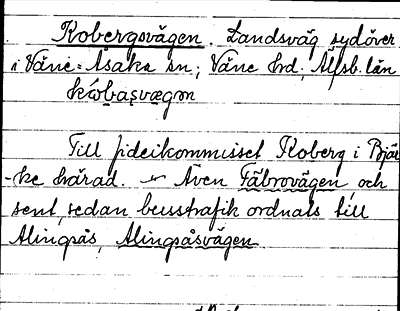 Kobergsvägen. Landsväg sydöver
i Väne-Åsaka sn; Väne hd; Älfsb. län
kɷ́basvægɷn
Till fideikommisset Koberg i Bjär
-ke härad. – Även Täbrovägen, och
sent, sedan busstrafik ordnats till
Alingsås, Alingsåsvägen